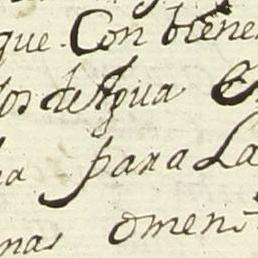 que. Con bienes
los de Agua
a para La
nas omen